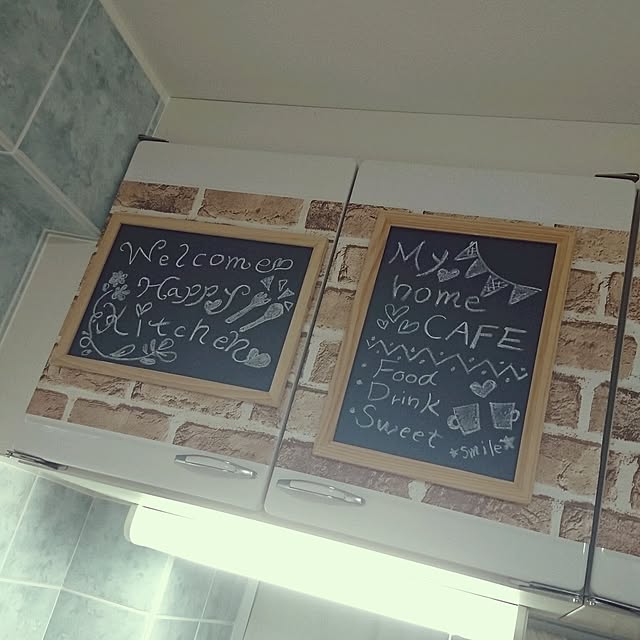 Welcome
Happy
Kitchen
My
home
CAFE
• Food
• Drink
• Sweet
*smile*